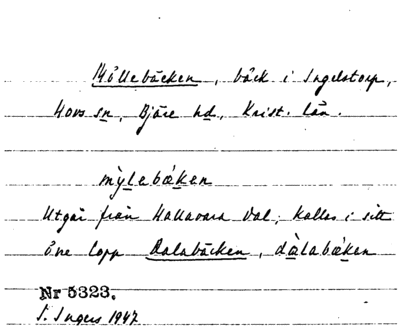 Möllebäcken, bäck i Ingelstorp,
Hovs sn, Bjäre hd, Krist. län.
mỳlebǽken
Utgår från Hallavara Dal; kallas i sitt
övre lopp Dalabäcken, dàlabǽken
Nr 5323.
I. Ingers 1947